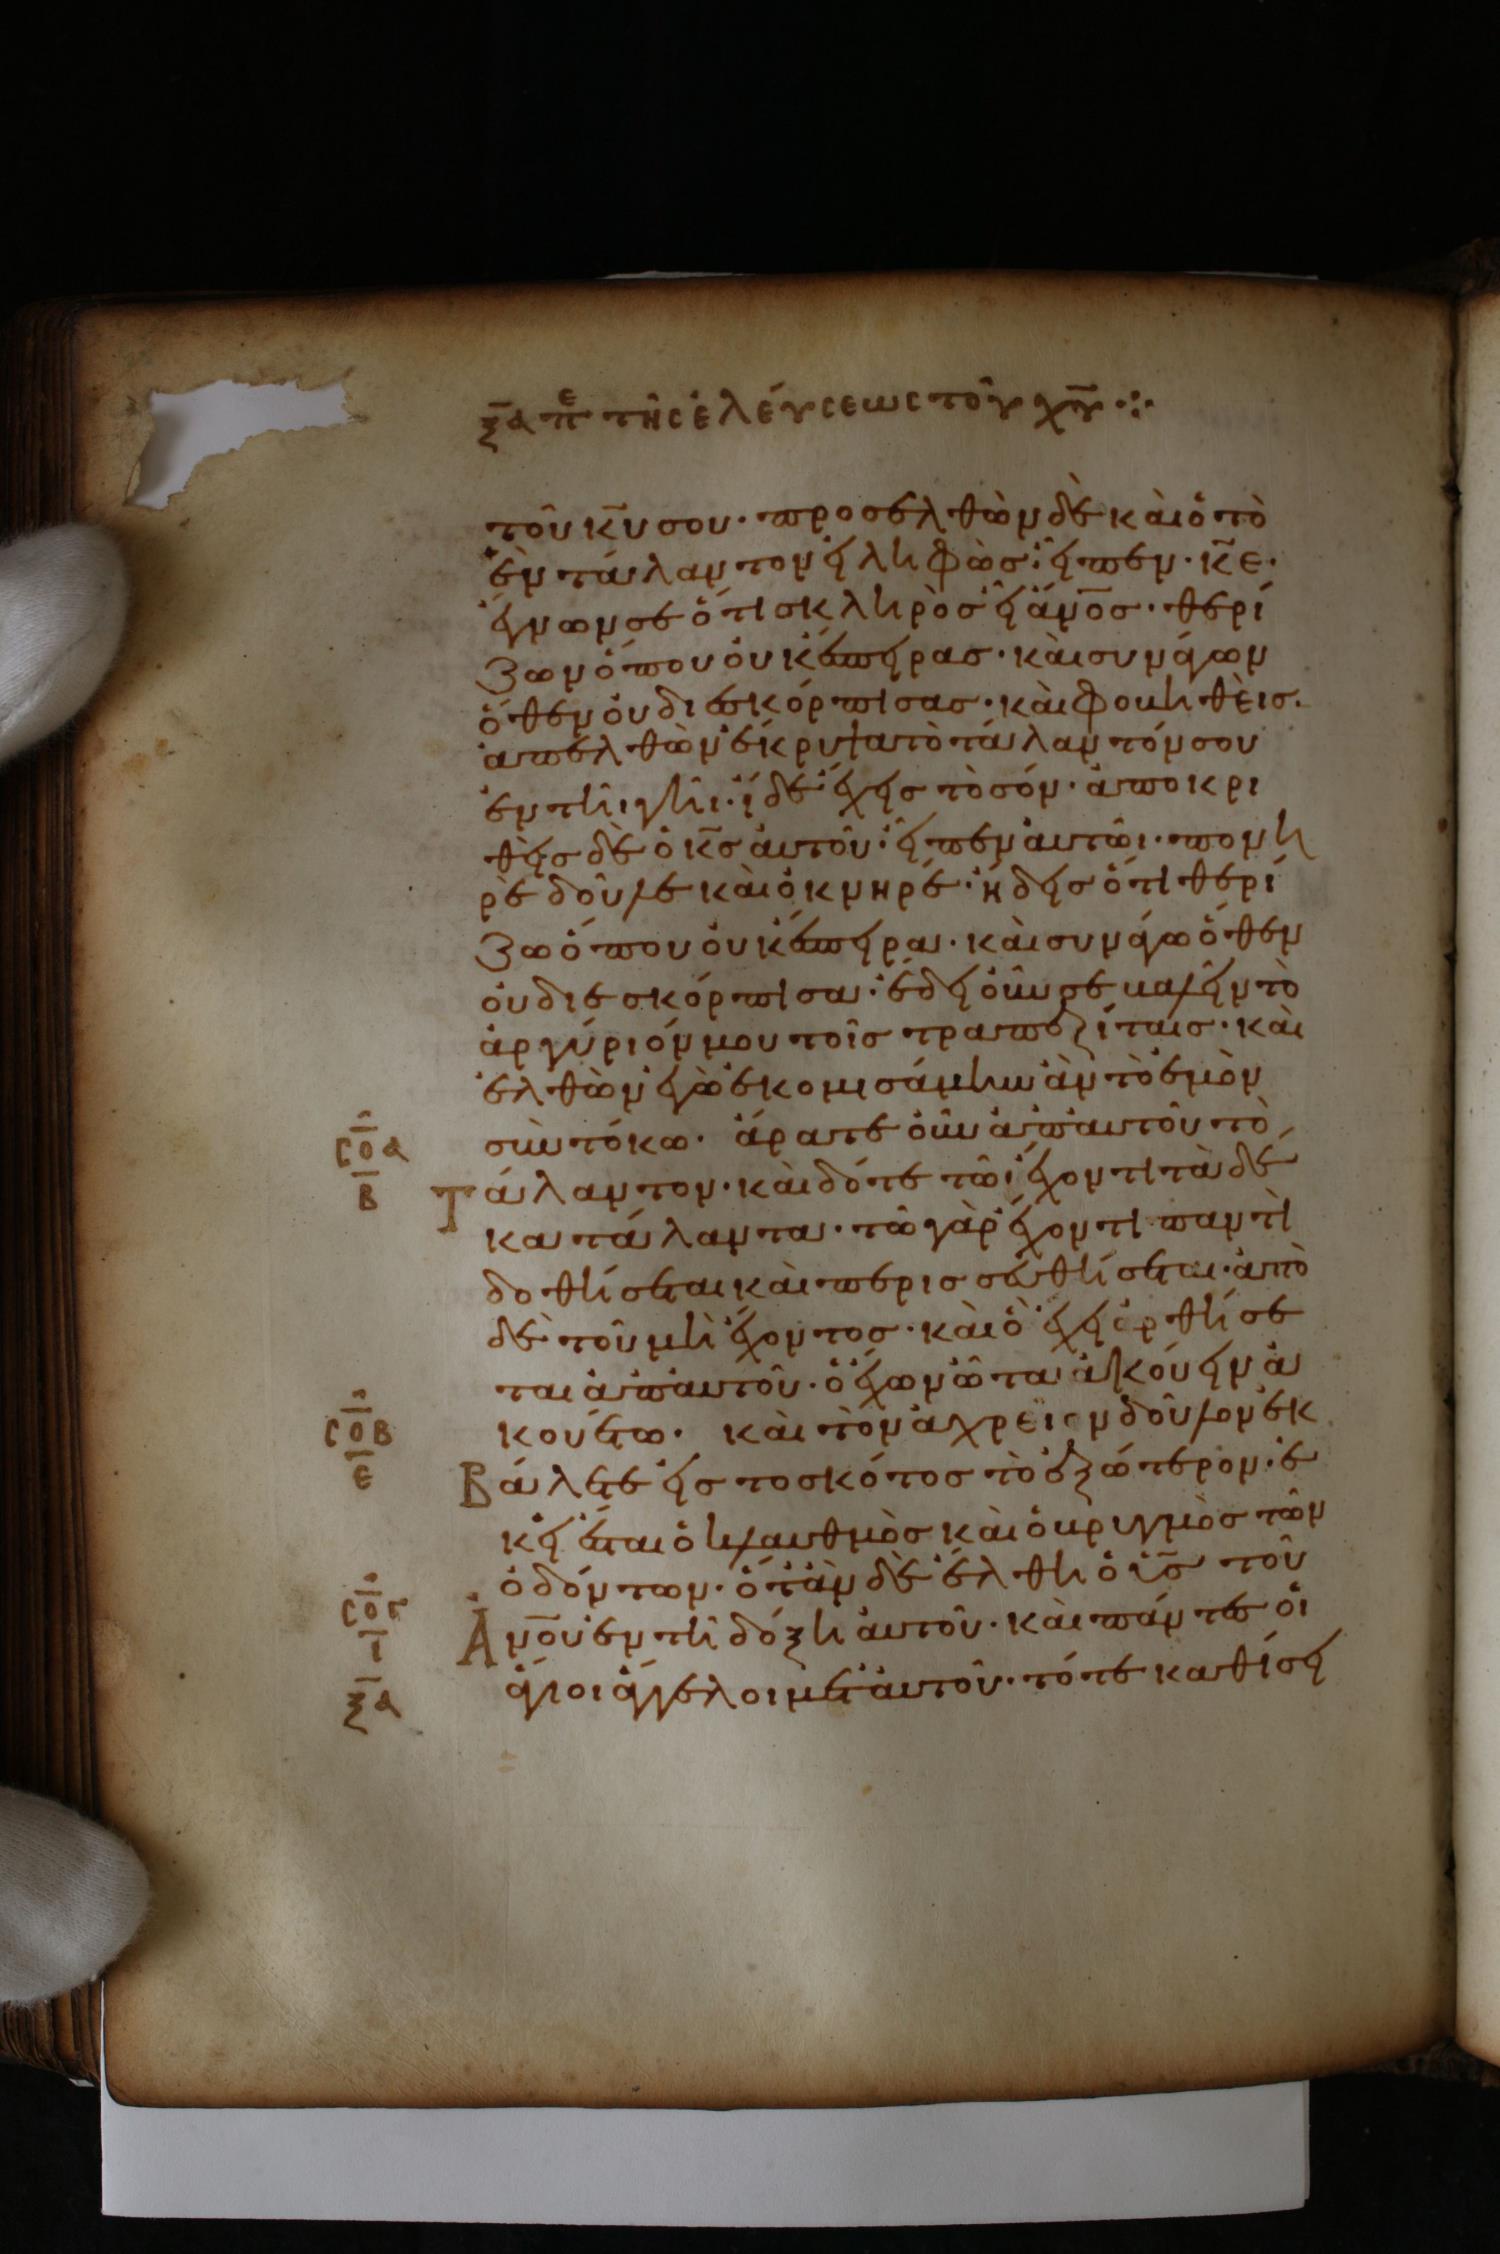 ξα πε τῆς ἐλεύσεως τοῦ χυ
τοῦ κυ σου· προσελθὼν δὲ καὶ ὁ τὸ
ἓν τάλαντον εἰληφὼσ· εἶπεν· κε·
ἔγνων σε ὅτι σκληρὸσ εἶ ἄνοσ· θερί
ζων ὅπου οὐκ ἔσπειρασ· καὶ συνάγων
ὅθεν οὐ διεσκόρπισασ· καὶ φοβηθεὶσ·
ἀπελθὼν ἔκρυψα τὸ τάλαντόν σου
ἐν τῆι γῆι· ἴδε ἔχεις τὸ σόν· ἀποκρι
θεὶς δὲ ὁ κσ αὐτοῦ· εἶπεν αὐτῶι· πονη
ρὲ δοῦλε καὶ ὀκνηρέ· ἤδεις ὅτι θερί
ζω ὅπου οὐκ ἔσπειρα· καὶ συνάγω ὅθεν
οὐ διεσκόρπισα· ἔδει οὖν σε βαλεῖν τὸ
ἀργύριόν μου τοῖς τραπεζίταις· καὶ
ἐλθὼν ἐγὼ ἐκομισάμην ἂν τὸ ἐμὸν
σὺν τόκω· ἄρατε οὖν ἀπ' αὐτοῦ τὸ
σοα
β
Τάλαντον· καὶ δότε τῶι ἔχοντι τὰ δέ
κα τάλαντα· τῶ γὰρ ἔχοντι παντὶ
δοθήσεται καὶ περισσευθήσεται· ἀπὸ
δὲ τοῦ μὴ ἔχοντος· καὶ ὃ ἔχει ἀρθήσε
ται ἀπ' αὐτοῦ· ὁ ἔχων ὦτα ἀκούειν ἀ
κουέτω· καὶ τὸν ἀχρεῖον δοῦλον ἐκ
σοβ
ε
Βάλετε εἰς το σκότος τὸ ἐξώτερον· ἐ
κεῖ ἔσται ὁ κλαυθμὸς καὶ ὁ βρυγμὸς τῶν
ὀδόντων· ὅταν δὲ ἔλθη ὁ υσ τοῦ
σογ
ι
ξα
Ἀνου ἐν τῆ δόξη αὐτοῦ· καὶ πάντες οἱ
ἅγιοι ἄγγελοι μετ' αὐτοῦ· τότε καθίσει